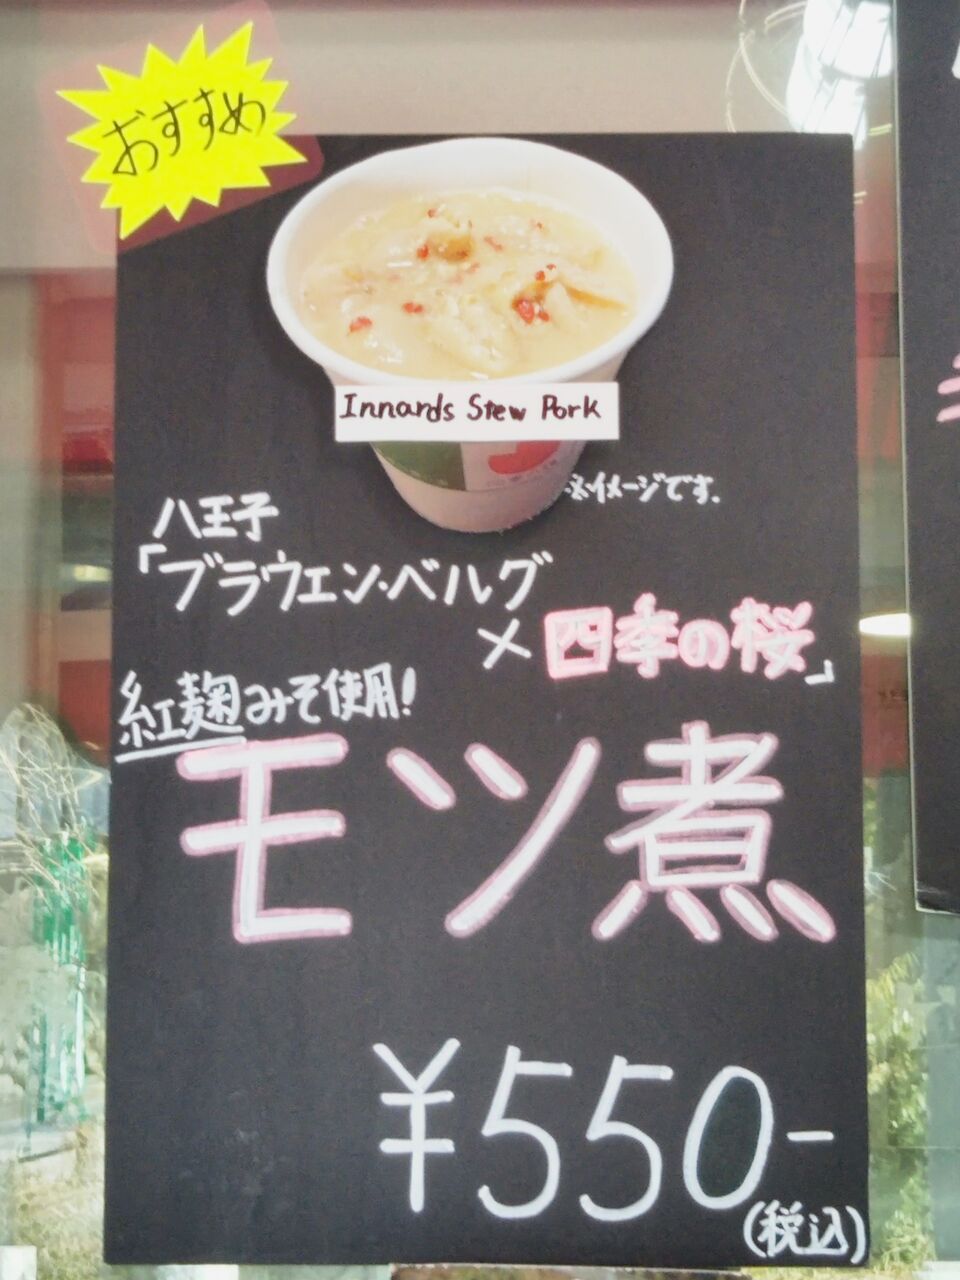 おすすめ
Innards Stew Pork
※イメージです.
八王子
「ブラウエン・ベルグ
×四季の桜」
紅麹みそ使用!
モツ煮
¥550-
(税込)